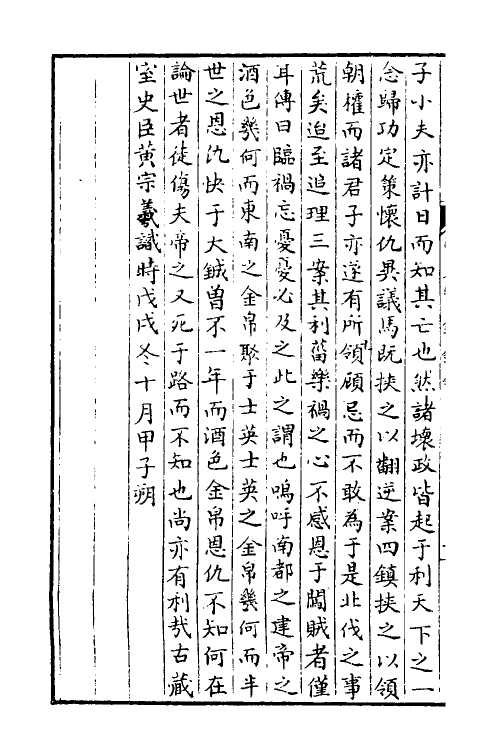 子小夫亦計日而知其亡也然諸壞政皆起于利天下之一
念歸功定策懷仇異議馬阮挾之以翻逆案四鎮挾之以領
朝權而諸君子亦遂有所領顧忌而不敢為于是北伐之事
荒矣迨至追理三案其利菑樂禍之心不感恩于闖賊者僅
耳傳曰臨禍忘憂憂必及之此之謂也嗚呼南都之建帝之
酒色幾何而東南之金帛聚于士英士英之金帛幾何而半
世之恩仇快于大鋮曾不一年而酒色金帛恩仇不知何在
論世者徒傷夫帝之又死于路而不知也尚亦有利㢤古藏
室史臣黃宗羲識時戊戌冬十月甲子朔